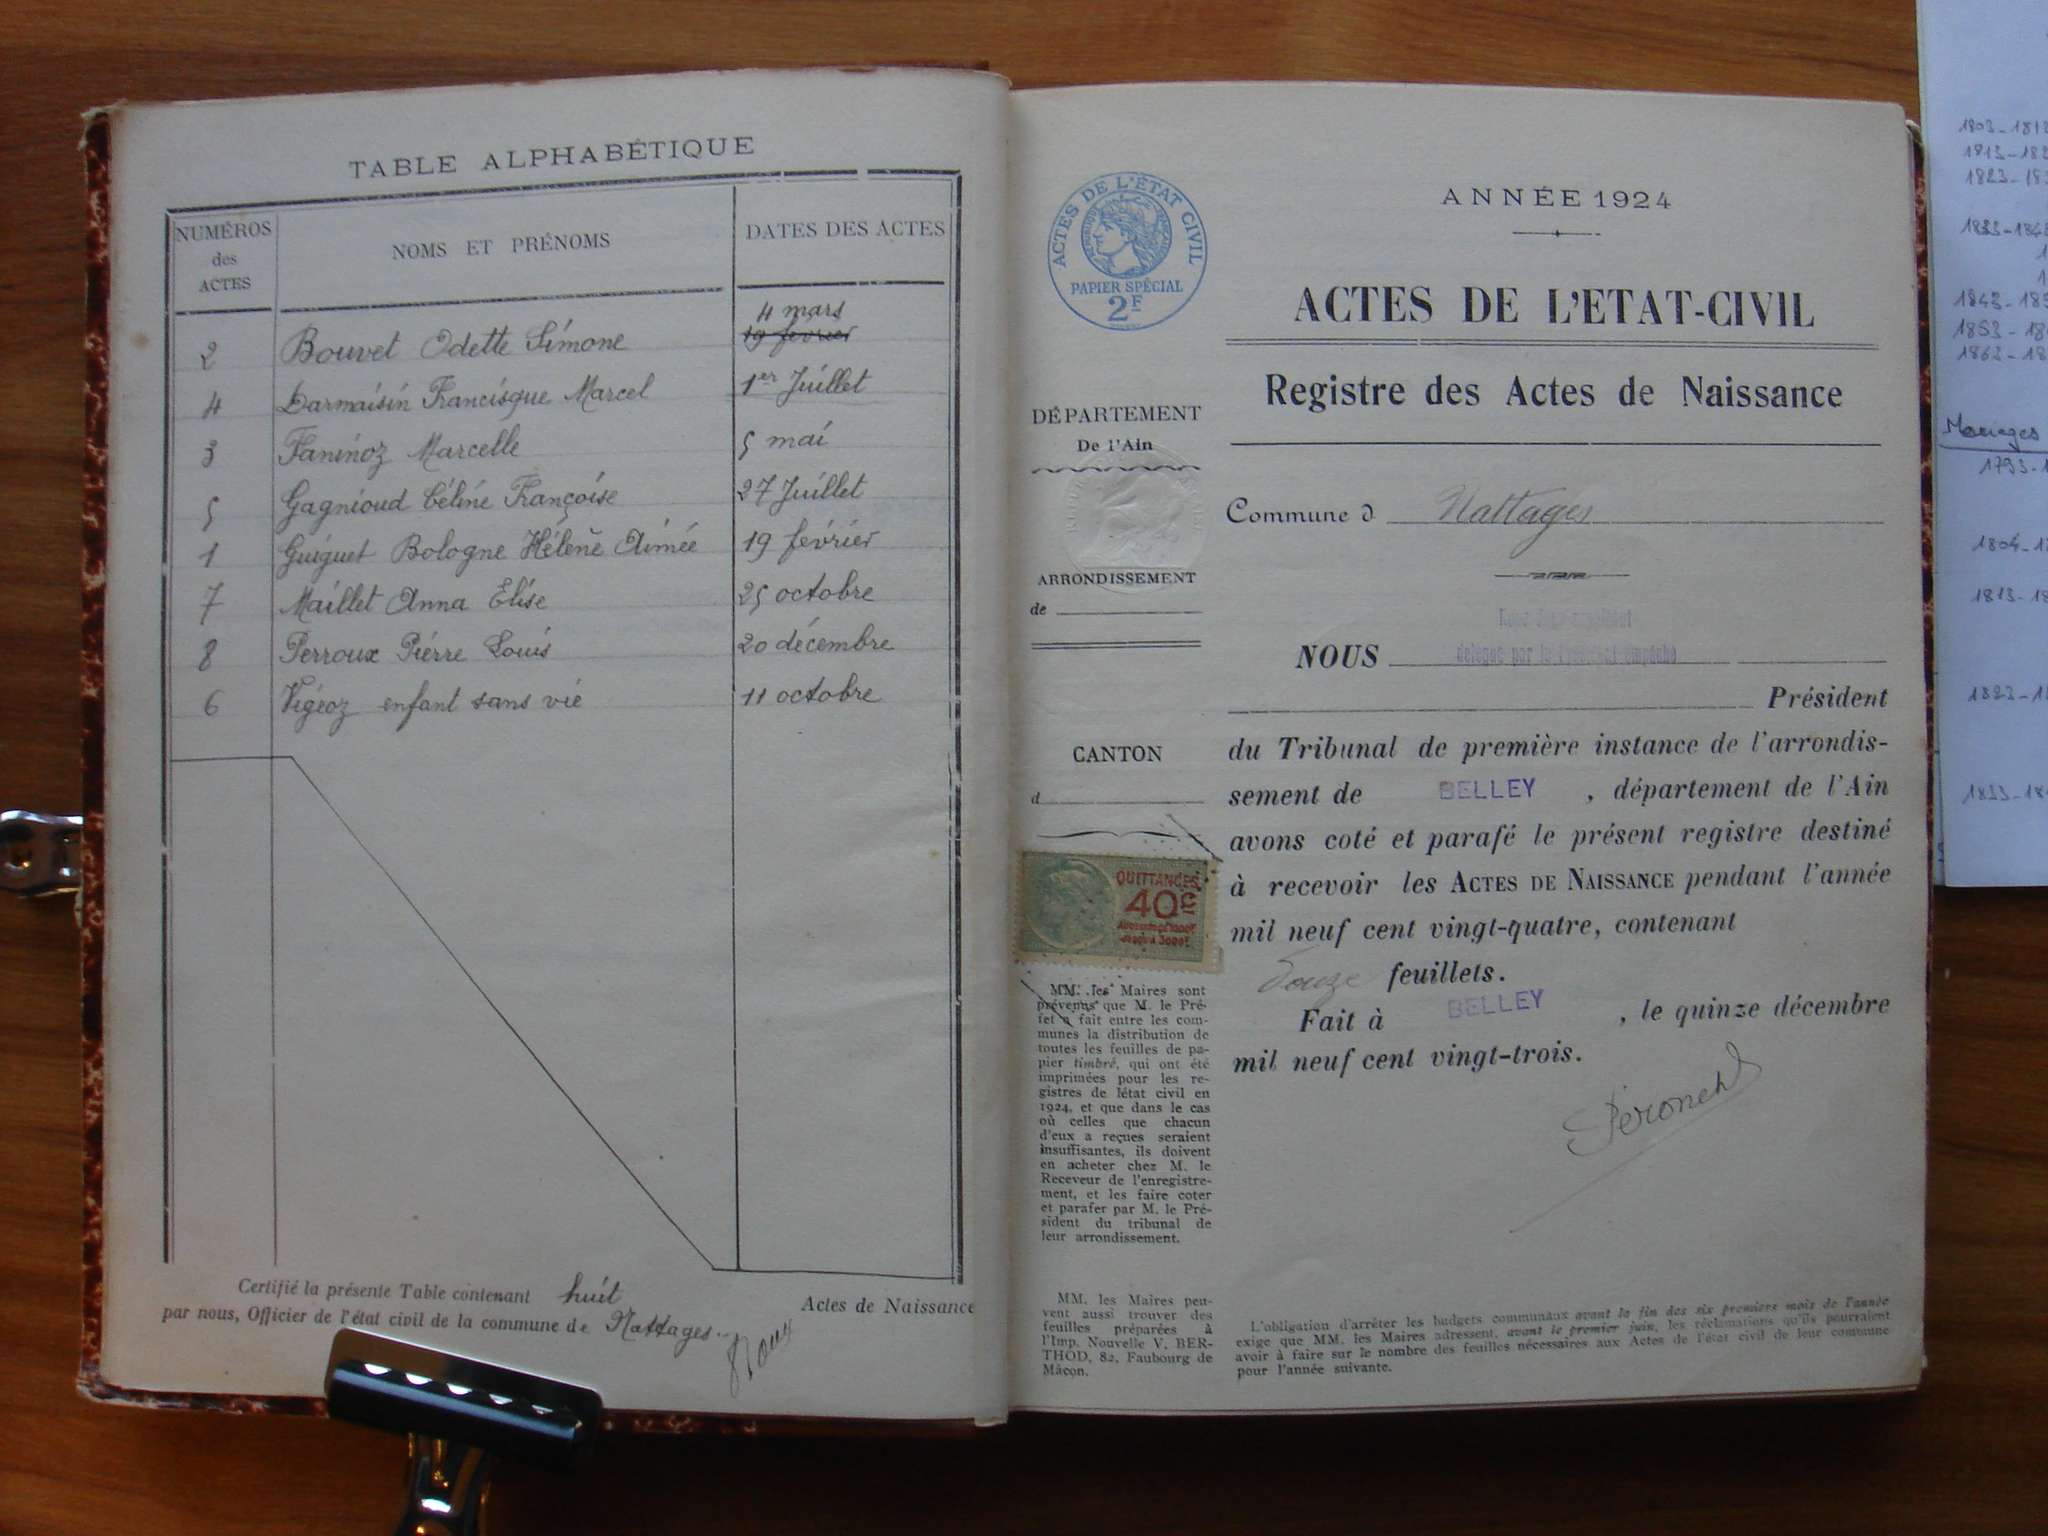 TABLE ALPHABÉTIQUE
NUMÉROS des ACTES
NOMS ET PRÉNOMS
DATES DES ACTES
2 Bouvet Odette Simone 4 mars 19 février
4 Darmaisin Francisque Marcel 1er Juillet
3 Faninoz Marcelle 5 mai
5 Gagnioud Céline Françoise 27 Juillet
1 Guiguet Bologne Hélène Aimée 19 février
7 Maillet Anna Elise 25 octobre
8 Perroux Pierre Louis 20 décembre
6 Vigéoz enfant sans vie 11 octobre
Certifié la présente Table contenant huit Actes de Naissance
par nous, Officier de l'état civil de la commune de Nattages.
Roux
ACTES DE L'ÉTAT CIVIL
RÉPUBLIQUE FRANÇAISE
PAPIER SPÉCIAL
2F
DÉPARTEMENT
De l'Ain
ARRONDISSEMENT
de
CANTON
d
QUITTANCES
40c
MM. les Maires sont
prévenus que M. le Pré-
fet a fait entre les com-
munes la distribution de
toutes les feuilles de pa-
pier timbré, qui ont été
imprimées pour les re-
gistres de létat civil en
1924, et que dans le cas
où celles que chacun
d'eux a reçues seraient
insuffisantes, ils doivent
en acheter chez M. le
Receveur de l'enregistre-
ment, et les faire coter
et parafer par M. le Pré-
sident du tribunal de
leur arrondissement.
MM. les Maires peu-
vent aussi trouver des
feuilles préparées à
l'Imp. Nouvelle V. BER-
THOD, 82, Faubourg de
Mâcon.
ANNÉE 1924
ACTES DE L'ETAT-CIVIL
Registre des Actes de Naissance
Commune d Nattages
NOUS délégué par le Président empêché
Président
du Tribunal de première instance de l'arrondis-
sement de BELLEY, département de l'Ain
avons coté et parafé le présent registre destiné
à recevoir les ACTES DE NAISSANCE pendant l'année
mil neuf cent vingt-quatre, contenant
Douze feuillets.
Fait à BELLEY, le quinze décembre
mil neuf cent vingt-trois.
L'obligation d'arrêter les budgets communaux avant la fin des six premiers mois de l'année
exige que MM. les Maires adressent, avant le premier juin, les réclamations qu'ils pourraient
avoir à faire sur le nombre des feuilles nécessaires aux Actes de l'état civil de leur commune
pour l'année suivante.
1803-181
1813-182
1823-18
1833-184
1843-185
1853-18
1863-18
Mariages
1793-1
1804-1
1813-18
1823-1
1833-18